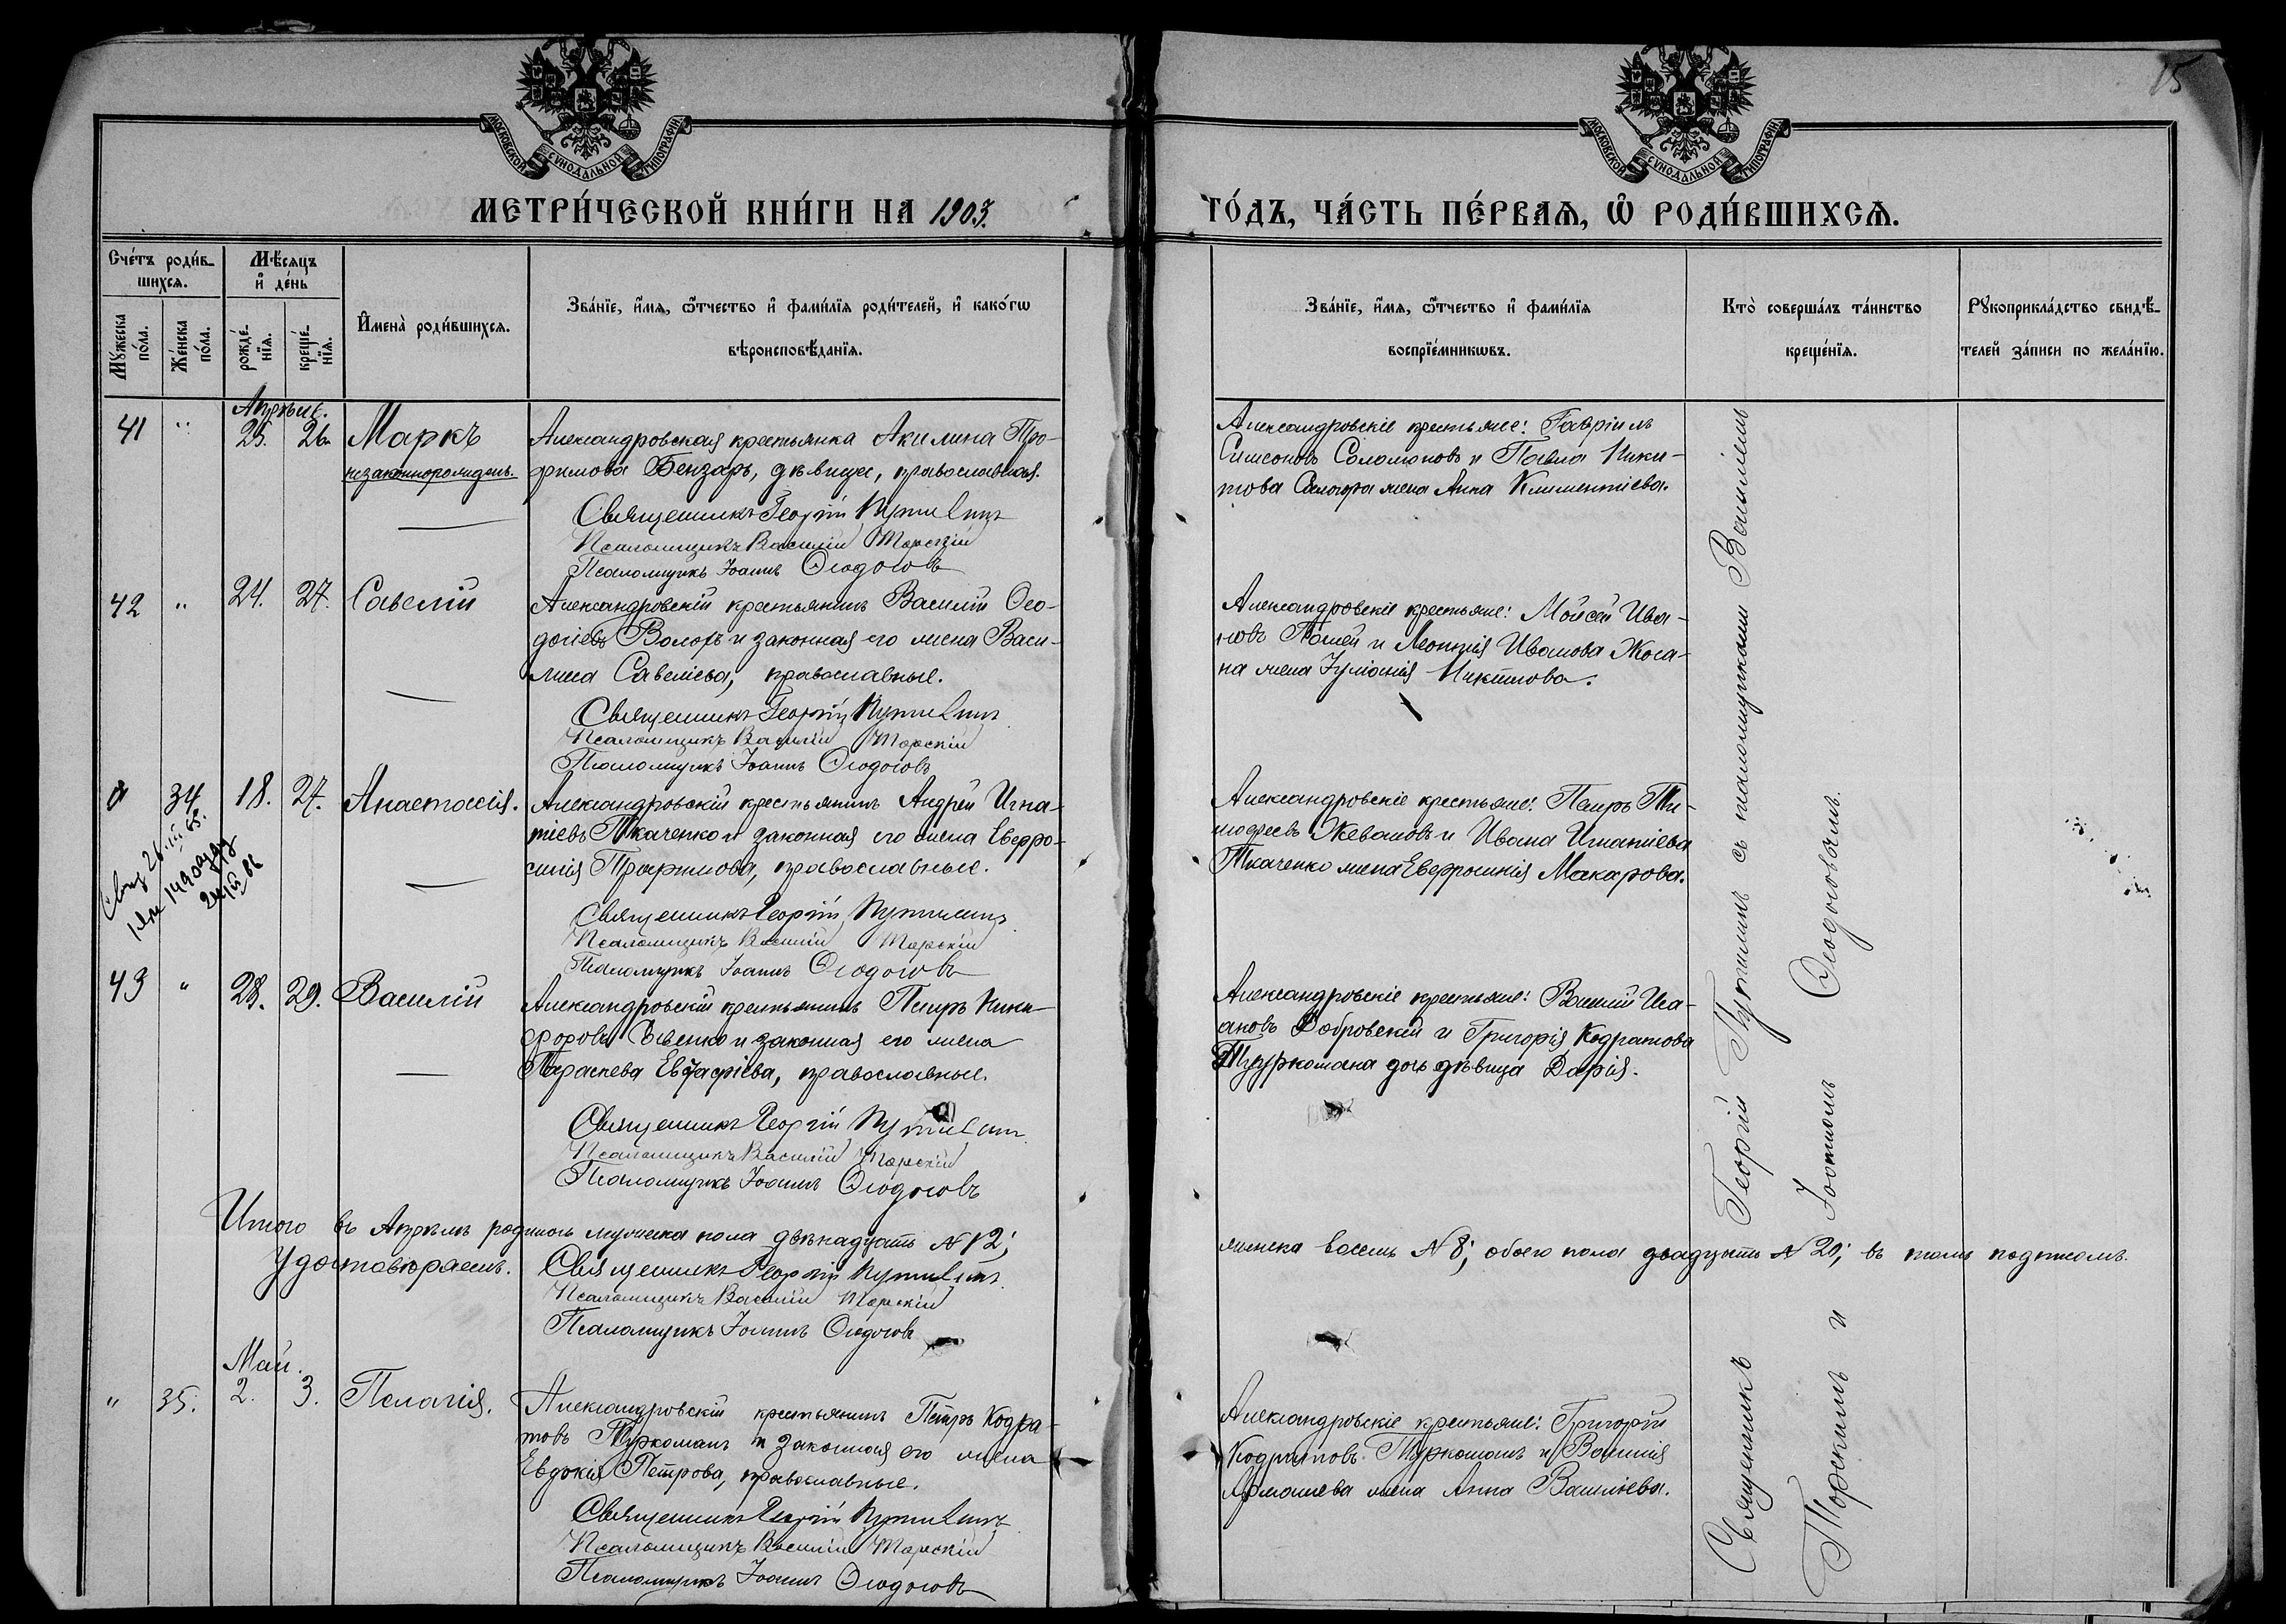 15
МОСКОВСКОЙ СѴНОДАЛЬНОЙ ТИПОГРАФІИ
МОСКОВСКОЙ СѴНОДАЛЬНОЙ ТИПОГРАФІИ
МЕТРИ́ЧЕСКОЙ КНИ́ГИ НА 1903. ГО́ДЪ, ЧА́СТЬ ПЕ́РВАѦ, Ѽ РОДИ́ВШИХСѦ.
Сче́тъ роди́в-
шихсѧ.
Мꙋ́жеска по́ла.
Же́нска по́ла.
Мѣ́сѧцъ и҆ де́нь
рожде́-
нїѧ.
креще́-
нїѧ.
И҆мена̀ роди́вшихсѧ.
Зва́нїе, и҆́мѧ, ѻ҆́тчество и҆ фамі́лїѧ роди́телей, и҆ како́гѡ
вѣроисповѣ́данїѧ.
Зва́нїе, и҆́мѧ, ѻ҆́тчество и҆ фамі́лїѧ
воспрїе́мникѡвъ.
Кто̀ соверша́лъ та́инство
креще́нїѧ.
Рꙋкоприкла́дство свидѣ́-
телей за́писи по жела́нїю.
Апрѣль.
41 " 25. 26. Маркъ
незаконнорожден.
Александровская крестьянка Акилина Тро-
фимова Бензарь, дѣвица, православная.
Священникъ Георгій Путилинъ
Псаломщикъ Василій Торскій
Псаломщикъ Іоаннъ Ѳеодосовъ
Александровскіе крестьяне: Гавріилъ
Симеоновъ Соломоновъ и Павла Ники-
това жена Анна Климентіева.
42 " 24. 27. Савелій
Александровскій крестьянинъ Василій Ѳео-
досіевъ Волохъ и законная его жена Васи-
лиса Савелиева, православные.
Священникъ Георгій Путилинъ
Псаломщикъ Василій Торскій
Псаломщикъ Іоаннъ Ѳеодосовъ
Александровскіе крестьяне: Мойсей Ива-
новъ и Леонтія Иванова Жоса-
на жена Іуліанія
" 34. 18. 27. Анастасія.
Александровскій крестьянинъ Андрей Игна-
тіевъ Ткаченко и законная его жена Евфро-
синія Трофимова, православные.
Священникъ Георгій Путилинъ
Псаломщикъ Василій Торскій
Псаломщикъ Іоаннъ Ѳеодосовъ
Александровскіе крестьяне: Петръ Ти-
моѳеевъ Жевановъ и Ивана Игнатіева
Ткаченко жена Евфросинія Макарова.
43 " 28. 29. Василій
Александровскій крестьянинъ Петръ Ники-
форовъ и законная его жена
Параскева православные.
Священникъ Георгій Путилинъ
Псаломщикъ Василій Торскій
Псаломщикъ Іоаннъ Ѳеодосовъ
Александровскіе крестьяне: Василій Иса-
аковъ Добровскій и Григорія Кодратова
Туркомана дочь дѣвица Дарія.
Итого въ Апрѣлѣ родилось мужеска пола двѣнадцать №12; женска восемь №8; обоего пола двадцать №20; въ томъ подписомъ
удостовѣряемъ. Священникъ Георгій Путилинъ
Псаломщикъ Василій Торскій
Псаломщикъ Іоаннъ Ѳеодосовъ
Май.
" 35. 2. 3. Пелагія.
Александровскій крестьянинъ Петръ Кодра-
товъ Туркоманъ и законная его жена
Евдокія Петрова, православные.
Священникъ Георгій Путилинъ
Псаломщикъ Василій Торскій
Псаломщикъ Іоаннъ Ѳеодосовъ
Александровскіе крестьяне: Григорій
Кодратовъ Туркоманъ и Василія
жена Анна Васильева.
Священникъ Георгій Путилинъ съ псаломщиками Василіемъ
Торскимъ и Іоанномъ Ѳеодосовымъ.